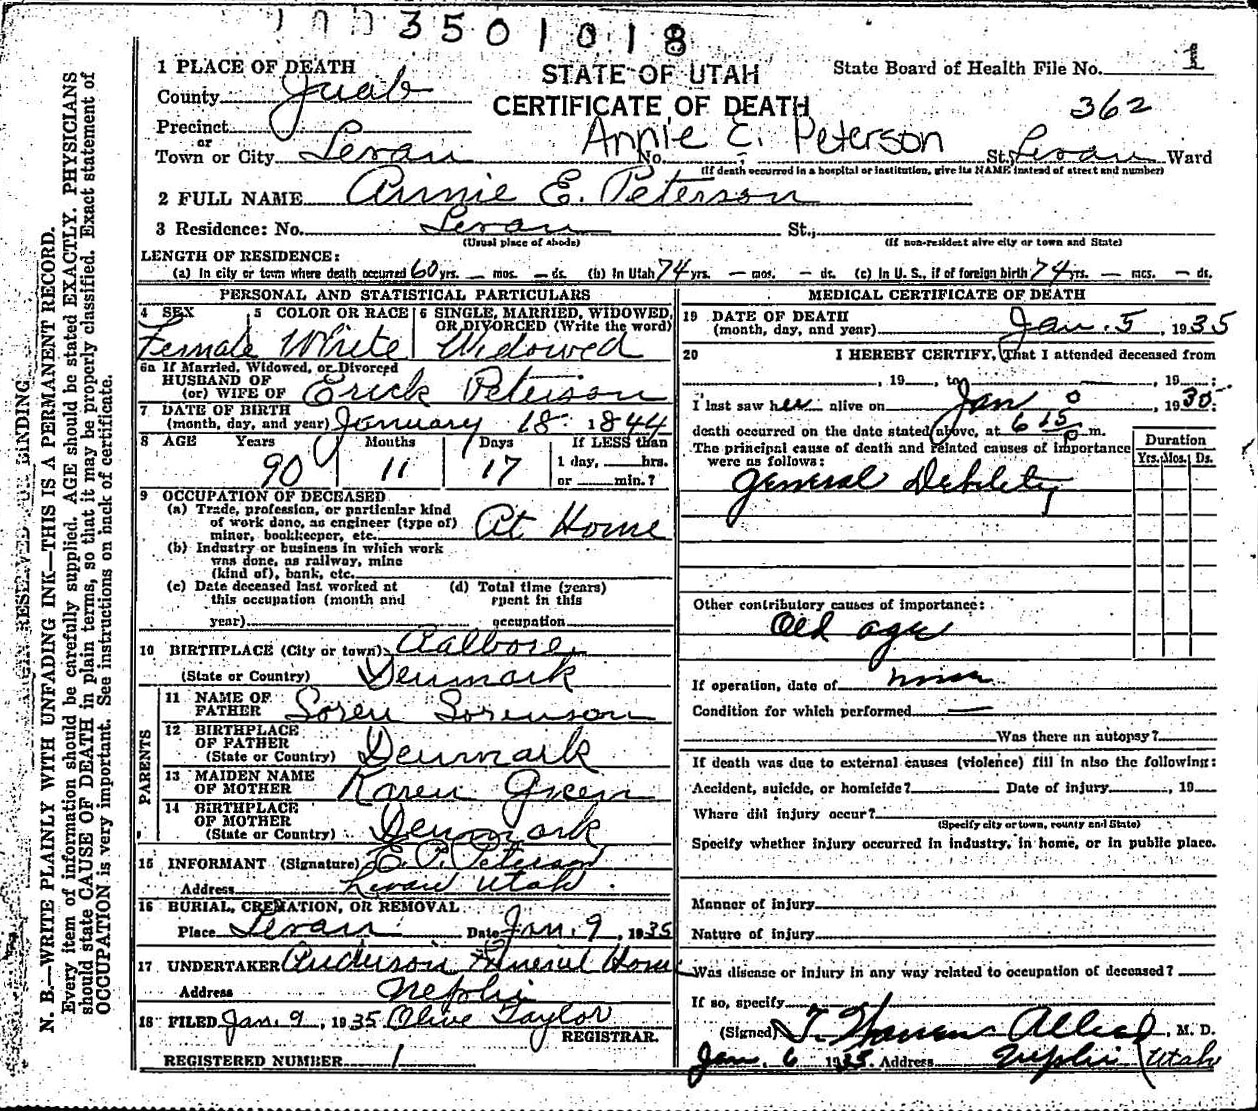 3501018
1 PLACE OF DEATH
STATE OF UTAH
State Board of Health File No. 1
County Juab
CERTIFICATE OF DEATH
362
Precinct
or
Annie E. Peterson
Town or City Levan No. St., Levan Ward
(If death occurred in a hospital or institution, give its NAME instead of street and number)
2 FULL NAME Annie E. Peterson
3 Residence: No. Levan St.,
(Usual place of abode) (If non-resident give city or town and State)
LENGTH OF RESIDENCE:
(a) In city or town where death occurred 60 yrs. — mos. — ds. (b) In Utah 74 yrs. — mos. — ds. (c) In U. S., if of foreign birth 74 yrs. — mos. — ds.
PERSONAL AND STATISTICAL PARTICULARS
4 SEX 5 COLOR OR RACE 6 SINGLE, MARRIED, WIDOWED, OR DIVORCED (Write the word)
Female White Widowed
6a If Married, Widowed, or Divorced
HUSBAND OF
(or) WIFE OF Erick Peterson
7 DATE OF BIRTH
(month, day, and year) January 18 1844
8 AGE Years Months Days If LESS than
90 11 17 1 day, hrs.
or min.?
9 OCCUPATION OF DECEASED
(a) Trade, profession, or particular kind
of work done, as engineer (type of)
miner, bookkeeper, etc. At Home
(b) Industry or business in which work
was done, as railway, mine
(kind of), bank, etc.
(c) Date deceased last worked at (d) Total time (years)
this occupation (month and spent in this
year) occupation
10 BIRTHPLACE (City or town) Aalbore
(State or Country) Denmark
PARENTS
11 NAME OF
FATHER Soren Sorenson
12 BIRTHPLACE
OF FATHER
(State or Country) Denmark
13 MAIDEN NAME
OF MOTHER Karen
14 BIRTHPLACE
OF MOTHER
(State or Country) Denmark
15 INFORMANT (Signature) E. P. Peterson
Address Levan Utah
16 BURIAL, CREMATION, OR REMOVAL
Place Levan Date Jan. 9, 1935
17 UNDERTAKER Anderson Funeral Home
Address Nephi
18 FILED Jan. 9, 1935 Olive Taylor
REGISTRAR.
REGISTERED NUMBER 1
MEDICAL CERTIFICATE OF DEATH
19 DATE OF DEATH
(month, day, and year) Jan. 5, 1935
20 I HEREBY CERTIFY, That I attended deceased from
, 19 , to , 19 :
I last saw her alive on Jan 0, 1930:
death occurred on the date stated above, at 6 15 p m.
The principal cause of death and related causes of importance
were as follows:
Duration
Yrs. Mos. Ds.
General Debility
Other contributory causes of importance:
Old age
If operation, date of none
Condition for which performed —
Was there an autopsy?
If death was due to external causes (violence) fill in also the following:
Accident, suicide, or homicide? Date of injury , 19
Where did injury occur?
(Specify city or town, county and State)
Specify whether injury occurred in industry, in home, or in public place.
Manner of injury
Nature of injury
Was disease or injury in any way related to occupation of deceased?
If so, specify
(Signed) T Warren Allred, M. D.
Jan. 6 1935. Address Nephi Utah
N. B.—WRITE PLAINLY WITH UNFADING INK—THIS IS A PERMANENT RECORD.
Every item of information should be carefully supplied. AGE should be stated EXACTLY. PHYSICIANS
should state CAUSE OF DEATH in plain terms, so that it may be properly classified. Exact statement of
OCCUPATION is very important. See instructions on back of certificate.